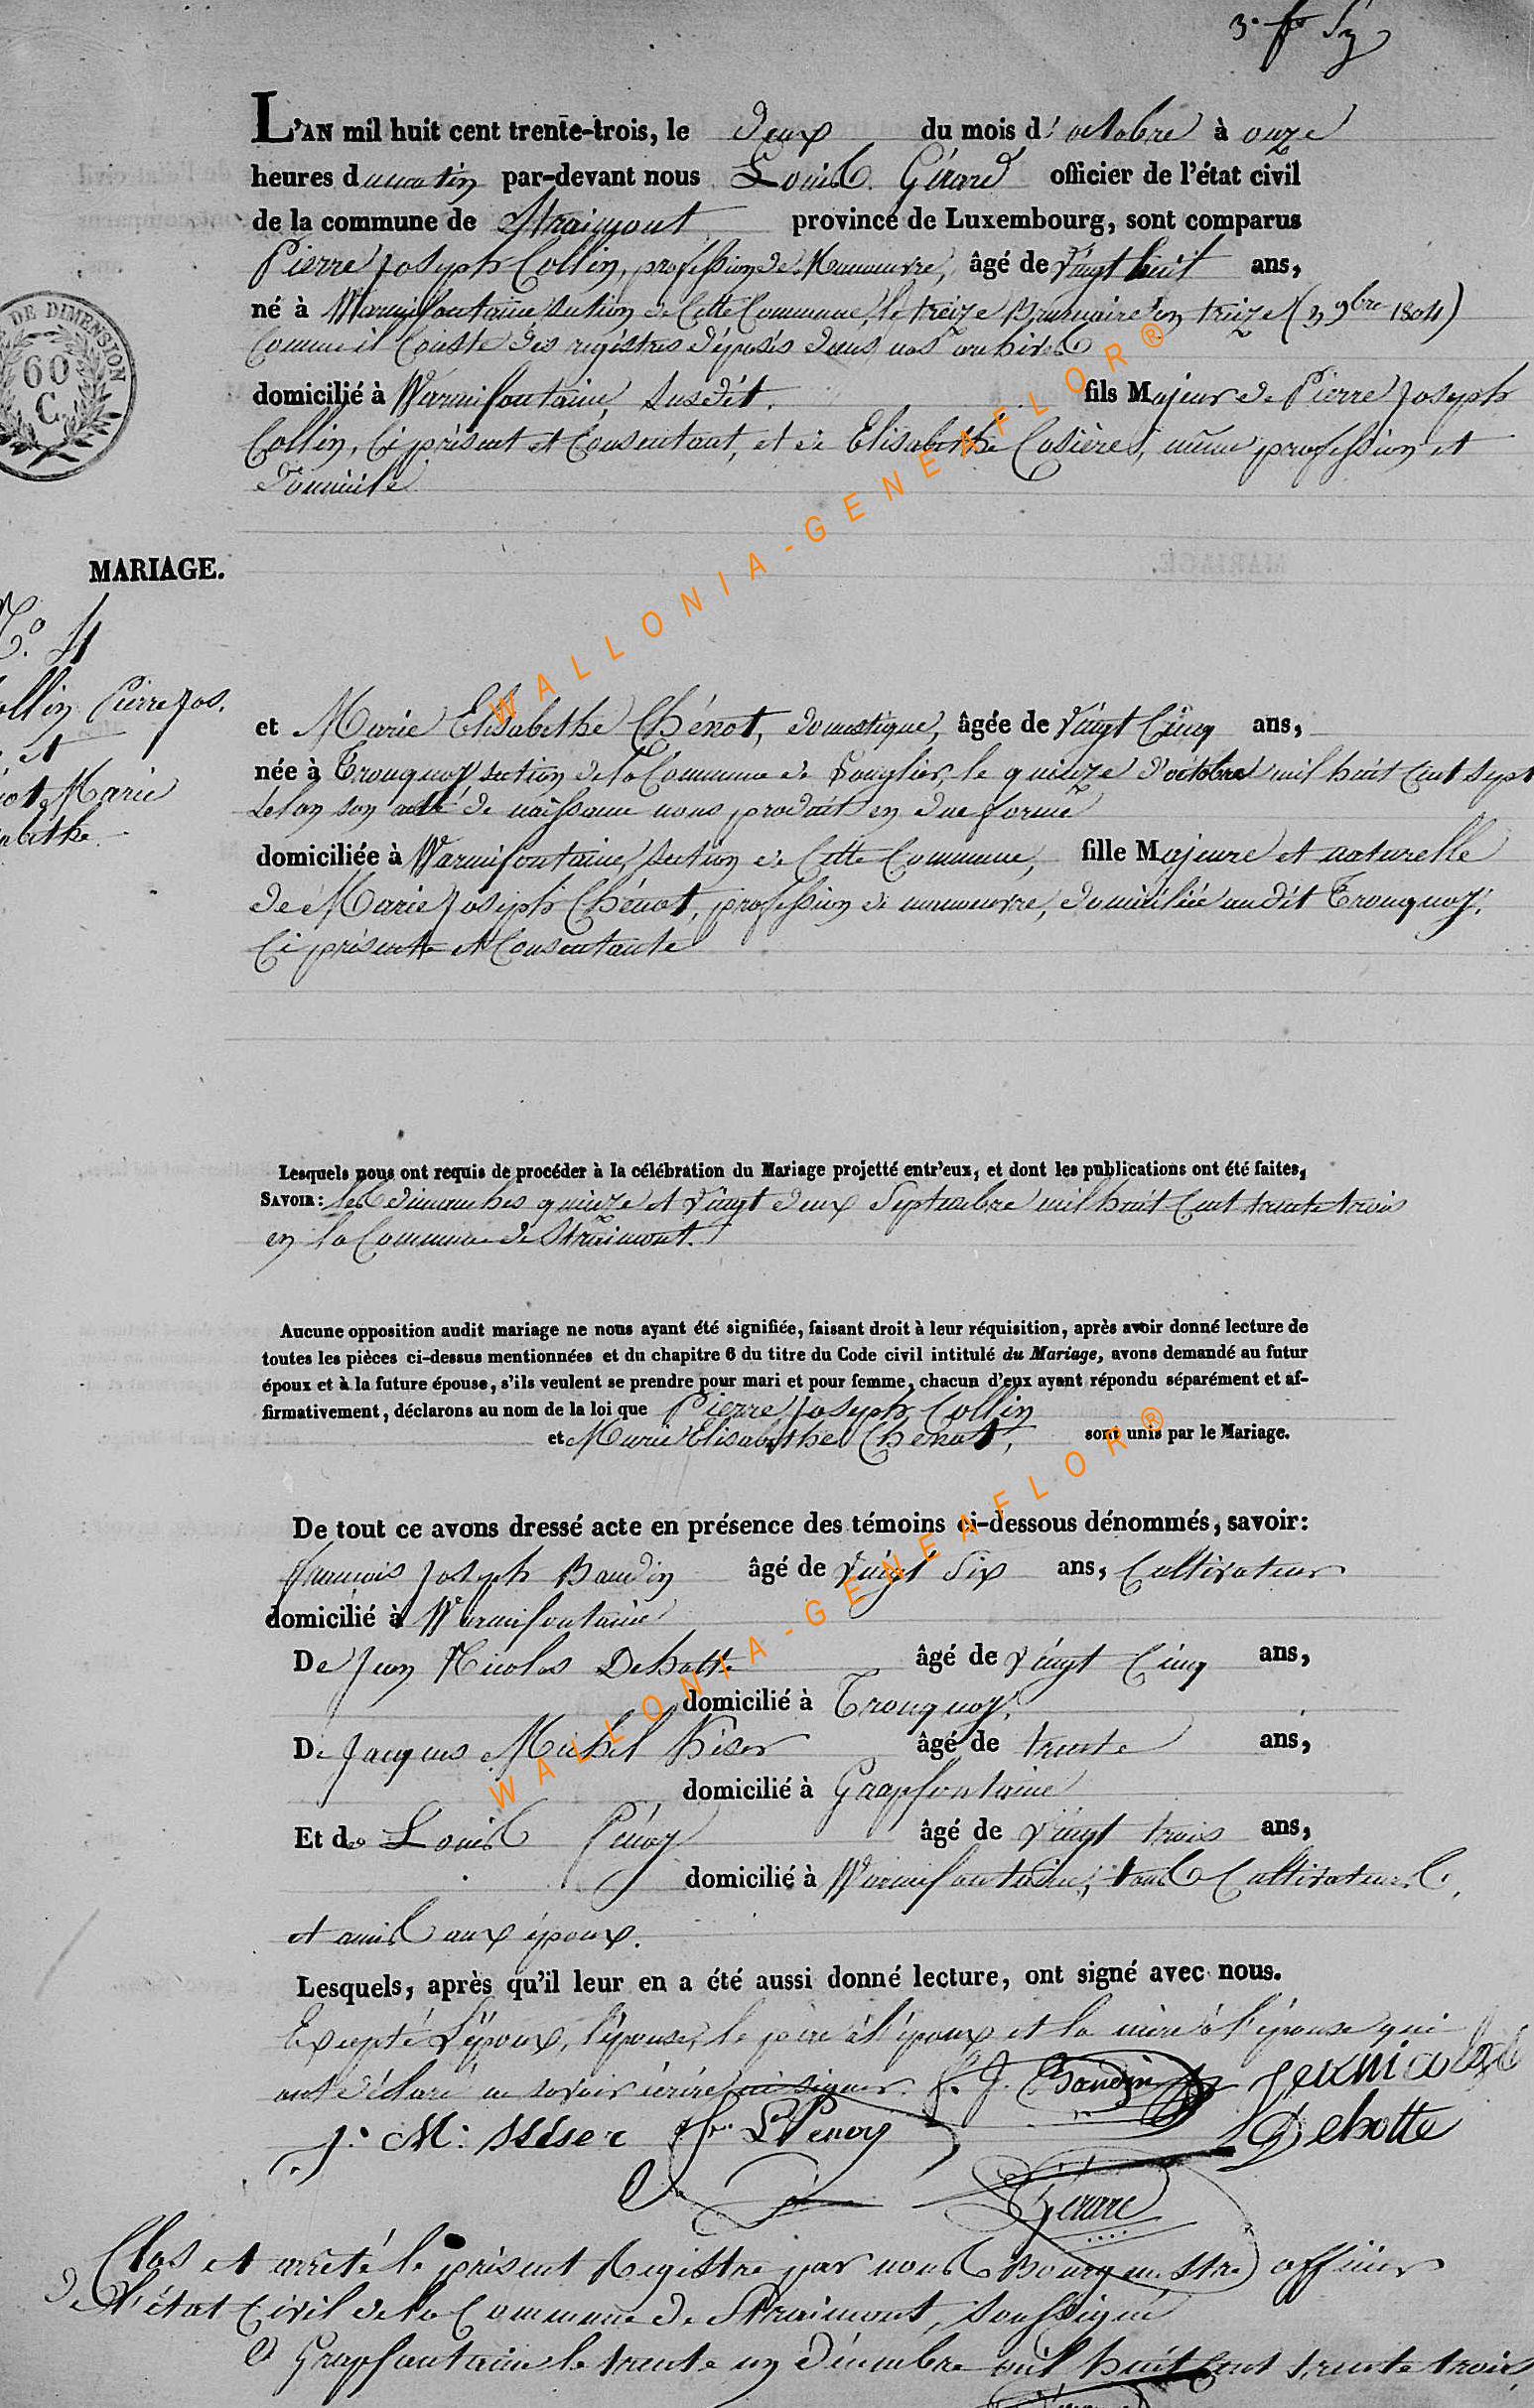 3e fo
L'AN mil huit cent trente-trois, le deux du mois d'octobre à onze
heures du matin par-devant nous Louis Gérard officier de l'état civil
de la commune de Straimont province de Luxembourg, sont comparus
Pierre Joseph Collin, profession de Manouvre, âgé de vingt huit ans,
né à Warmifontaine section de Cette Commune, le treize Brumaire en treize (3 9bre 1804)
Comme il Conste des registres déposés dans nos archives
domicilié à Warmifontaine, susdit. fils Majeur de Pierre Joseph
Collin, Ci présent et Consentant, et de Elisabethe Casières, même profession et
domicile
DE DIMENSION
60
C.
MARIAGE.
No. 4
ollin Pierre Jos.
et
not Marie
abethe
et Marie Elisabethe Chénot, domestique, âgée de vingt Cinq ans,
née à Tronquoy section de la Commune de Longlier, le quinze d'octobre mil huit Cent sept
selon son acte de naissance nous produit en due forme
domiciliée à Warmifontaine, section de Cette Commune, fille Majeure et naturelle
de Marie Joseph Chénot, profession de manouvre, domiciliée audit Tronquoy.
Ci présente et Consentante
Lesquels nous ont requis de procéder à la célébration du Mariage projetté entr'eux, et dont les publications ont été faites,
SAVOIR: les dimanches quinze et vingt deux Septembre mil huit Cent trente trois
en la Commune de Straimont.
Aucune opposition audit mariage ne nous ayant été signifiée, faisant droit à leur réquisition, après avoir donné lecture de
toutes les pièces ci-dessus mentionnées et du chapitre 6 du titre du Code civil intitulé du Mariage, avons demandé au futur
époux et à la future épouse, s'ils veulent se prendre pour mari et pour femme, chacun d'eux ayant répondu séparément et af-
firmativement, déclarons au nom de la loi que Pierre Joseph Collin
et Marie Elisabethe Chénot, sont unis par le Mariage.
De tout ce avons dressé acte en présence des témoins ci-dessous dénommés, savoir:
francois Joseph Baudin âgé de vingt Six ans, Cultivateur
domicilié à Warmifontaine
De Jean Nicolas Dehotte âgé de vingt Cinq ans,
domicilié à Tronquoy,
De Jacques Michel Kiser âgé de trente ans,
domicilié à Grapfontaine
Et de Louis Pénoy âgé de vingt trois ans,
domicilié à Warmifontaine, tous Cultivateurs,
et amis aux époux.
Lesquels, après qu'il leur en a été aussi donné lecture, ont signé avec nous.
Excepté l'époux, l'épouse, le père à l'époux et la mère à l'épouse qui
ont déclaré ne savoir écrire ni signer. f. J. Baudin Jean nicolas
J: M: Kiser L Penoy Dehotte
Gerard
Clos et arrêté le présent Registre par nous Bourgmestre officier
de l'état Civil de la Commune de Straimont, soussigné
A Grapfontaine le trente un décembre mil huit Cent trente trois
WALLONIA-GENEAFLOR®
WALLONIA-GENEAFLOR®